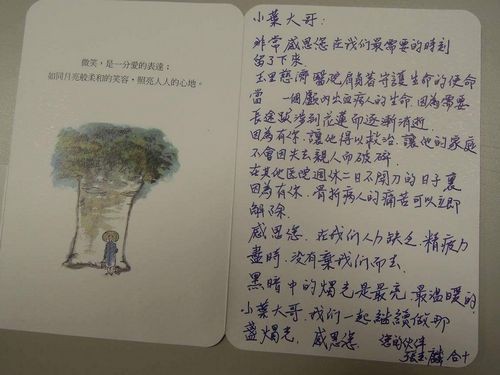 微笑，是一分愛的表達；
如同月亮般柔和的笑容，照亮人人的心地。
小葉大哥：
非常感恩您在我們最需要的時刻
留了下來
玉里慈濟醫院肩負著守護生命的使命
當 一個顱內出血病人的生命，因為需要
長途跋涉到花蓮而逐漸消逝
因為有你，讓他得以救治，讓他的家庭
不會因失去親人而破碎．
在其他医院週休二日不開刀的日子裏
因為有你，骨折病人的痛苦可以立即
解除．
感恩您，在我們人力缺乏，精疲力
盡時，沒有棄我們而去．
黑暗中的燭光是最亮，最溫暖的，
小葉大哥，我們一起繼續做那
盞燭光，感恩您． 您的伙伴
張玉麟 合十